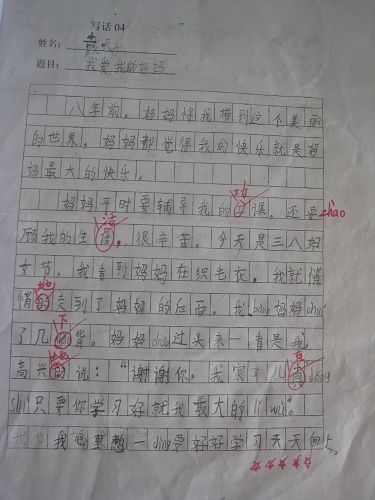 写话 04
姓名：
题目：我爱我的妈妈
八年前，妈妈你我带到这个美丽
的世界。妈妈都觉得我的快乐就是妈
妈最大的快乐。
功
妈妈平时要辅导我的工课，还要zhào
活
顾我的生，很辛苦。今天是三八妇
女节，我看到妈妈在织毛衣。我就悄
地
悄走到了妈妈的后面。我bang妈妈chuí
下
了几背。妈妈zhuǎn过头来一看是我，
地
高兴的说：“谢谢你，我家木儿真dǒng
shì只要你学习好就我最大的lǐ wù。”
我心里想一dìng要好好学习天天向上。
☆☆☆☆☆